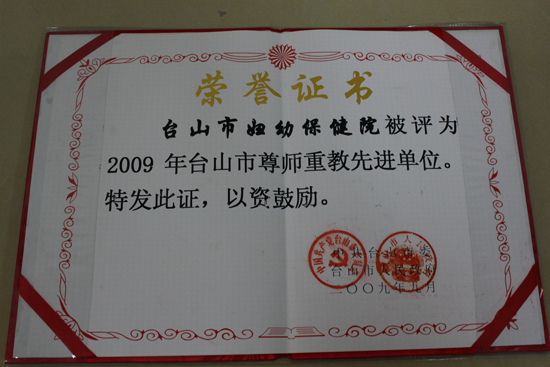 荣誉证书
台山市妇幼保健院被评为
2009年台山市尊师重教先进单位。
特发此证，以资鼓励。
中共台山市委
台山市人民政府
二〇〇九年九月